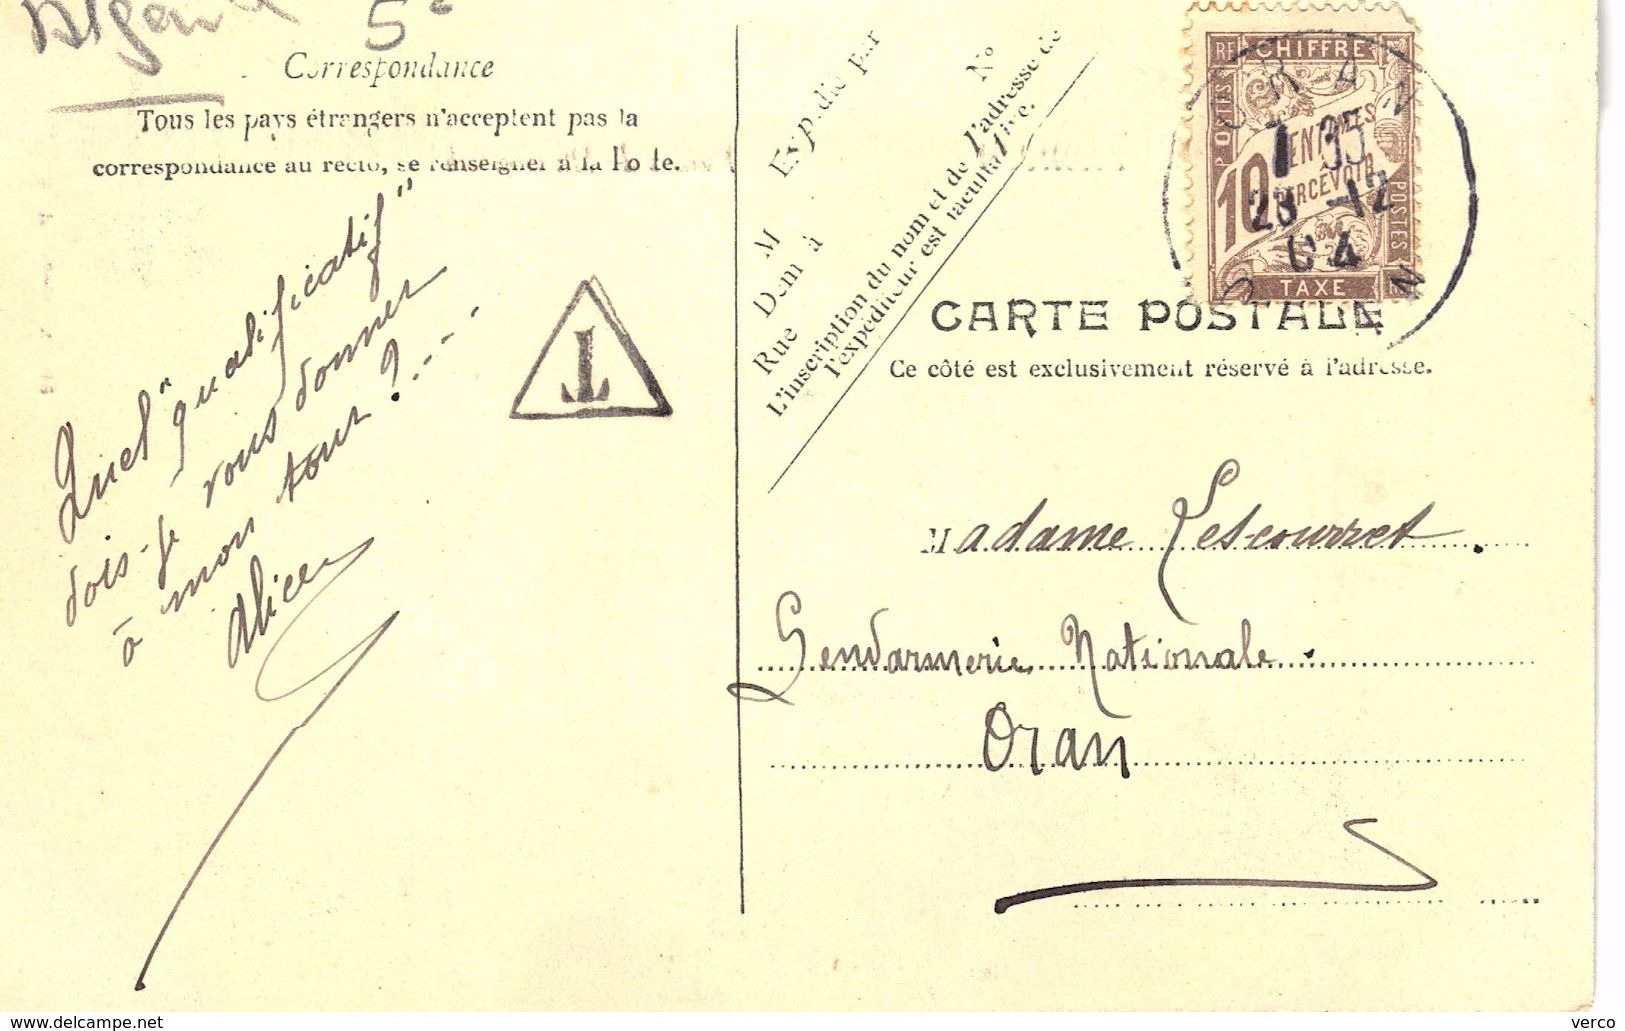 5c
Correspondance
Tous les pays étrangers n'acceptent pas la
correspondance au recto, se renseigner à la Poste.
Quel "qualificatif"
dois-je vous donner
à mon tour ?....
Alice
T
Expédié par
M
Dem à
Rue
No
L'inscription du nom et de l'adresse de
l'expéditeur est facultative.
RF CHIFFRE
POSTES
10 CENTIMES
A PERCEVOIR
POSTES
TAXE
ORAN
1 35
23 -12
04
ORAN
CARTE POSTALE
Ce côté est exclusivement réservé à l'adresse.
Madame Lescourret.
Gendarmerie Nationale.
Oran
www.delcampe.net
verco